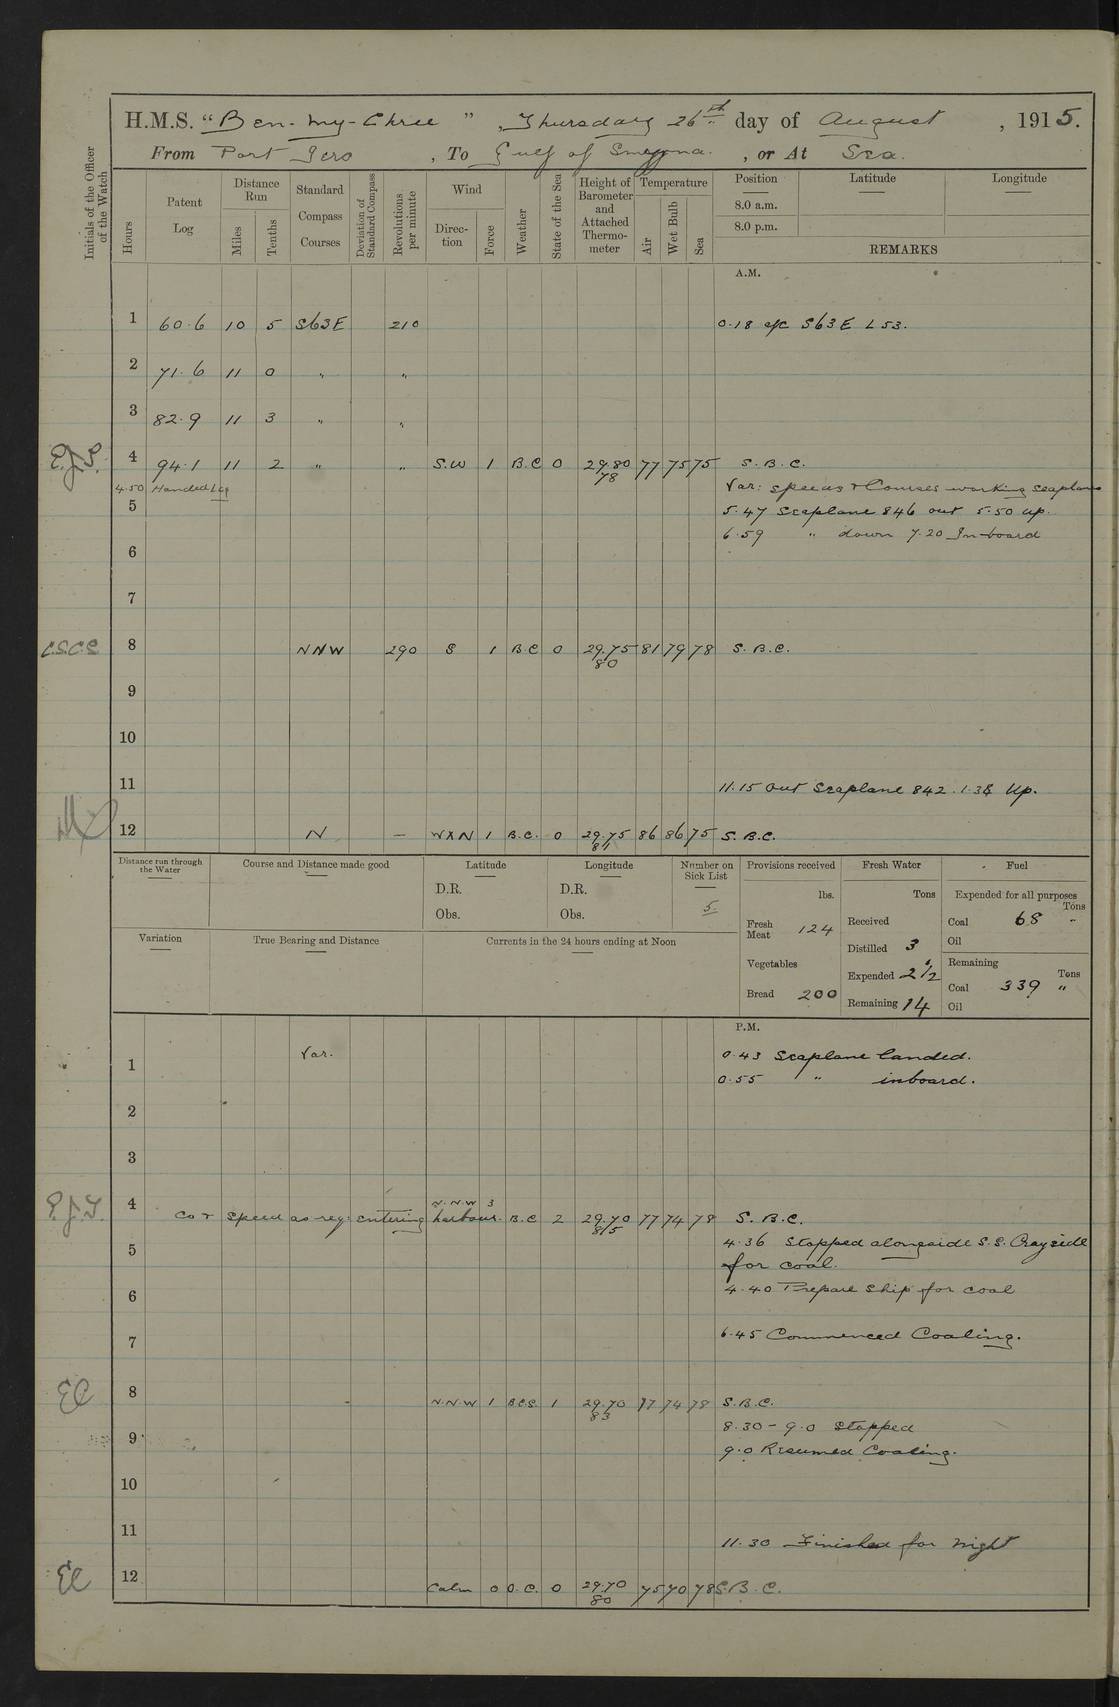 H.M.S. "Ben-my-Chree", Thursday 26th day of August, 1915.
From Port Iero, To Gulf of Smyrna., or At Sea.
Initials of the Officer of the Watch
Hours
Patent Log
Distance Run
Miles
Tenths
Standard Compass Courses
Deviation of Standard Compass
Revolutions per minute
Wind
Direction
Force
Weather
State of the Sea
Height of Barometer and Attached Thermometer
Temperature
Air
Wet Bulb
Sea
Position
Latitude
Longitude
8.0 a.m.
8.0 p.m.
REMARKS
A.M.
1 60.6 10 5 S63E 210 0.18 a/c S63E L53.
2 71.6 11 0 " "
3 82.9 11 3 " "
E.J.S. 4 94.1 11 2 " " S.W 1 B.C 0 29.80 78 77 75 75 S.B.C.
4.50 Handed Log Var: speeds & Courses working seaplane
5 5.47 Seaplane 846 out 5.50 up.
6.59 " down 7.20 In-board
6
7
8 NNW 290 S 1 B.C 0 29.75 80 81 79 78 S.B.C.
9
10
11 11.15 Out Seaplane 842. Up.
12 N — WXN 1 B.C. 0 29.75 81 86 86 75 S.B.C.
Distance run through the Water
Course and Distance made good
Latitude
D.R.
Obs.
Longitude
D.R.
Obs.
Number on Sick List
5
Provisions received
lbs.
Fresh Meat 124
Vegetables
Bread 200
Fresh Water
Tons
Received
Distilled 3
Expended 2 1/2
Remaining 14
Fuel
Expended for all purposes
Tons
Coal 68 "
Oil
Remaining
Tons
Coal 339 "
Oil
Variation
True Bearing and Distance
Currents in the 24 hours ending at Noon
P.M.
Var. 0.43 Seaplane landed.
1 0.55 " inboard.
2
3
4 N.N.W 3
Co & speed as req: entering harbour. B.C 2 29.70 81.5 77 74 78 S.B.C.
4.36 Stopped alongside S.S. Crayside
5 for coal.
6 4.40 Prepare Ship for coal
7 6.45 Commenced Coaling.
EC 8 N.N.W 1 B.C.S. 1 29.70 83 77 74 78 S.B.C.
8.30 - 9.0 Stopped
9 9.0 Resumed Coaling.
10
11 11.30 Finished for night
EC 12 Calm 0 O.C. 0 29.70 80 75 70 78 S.B.C.